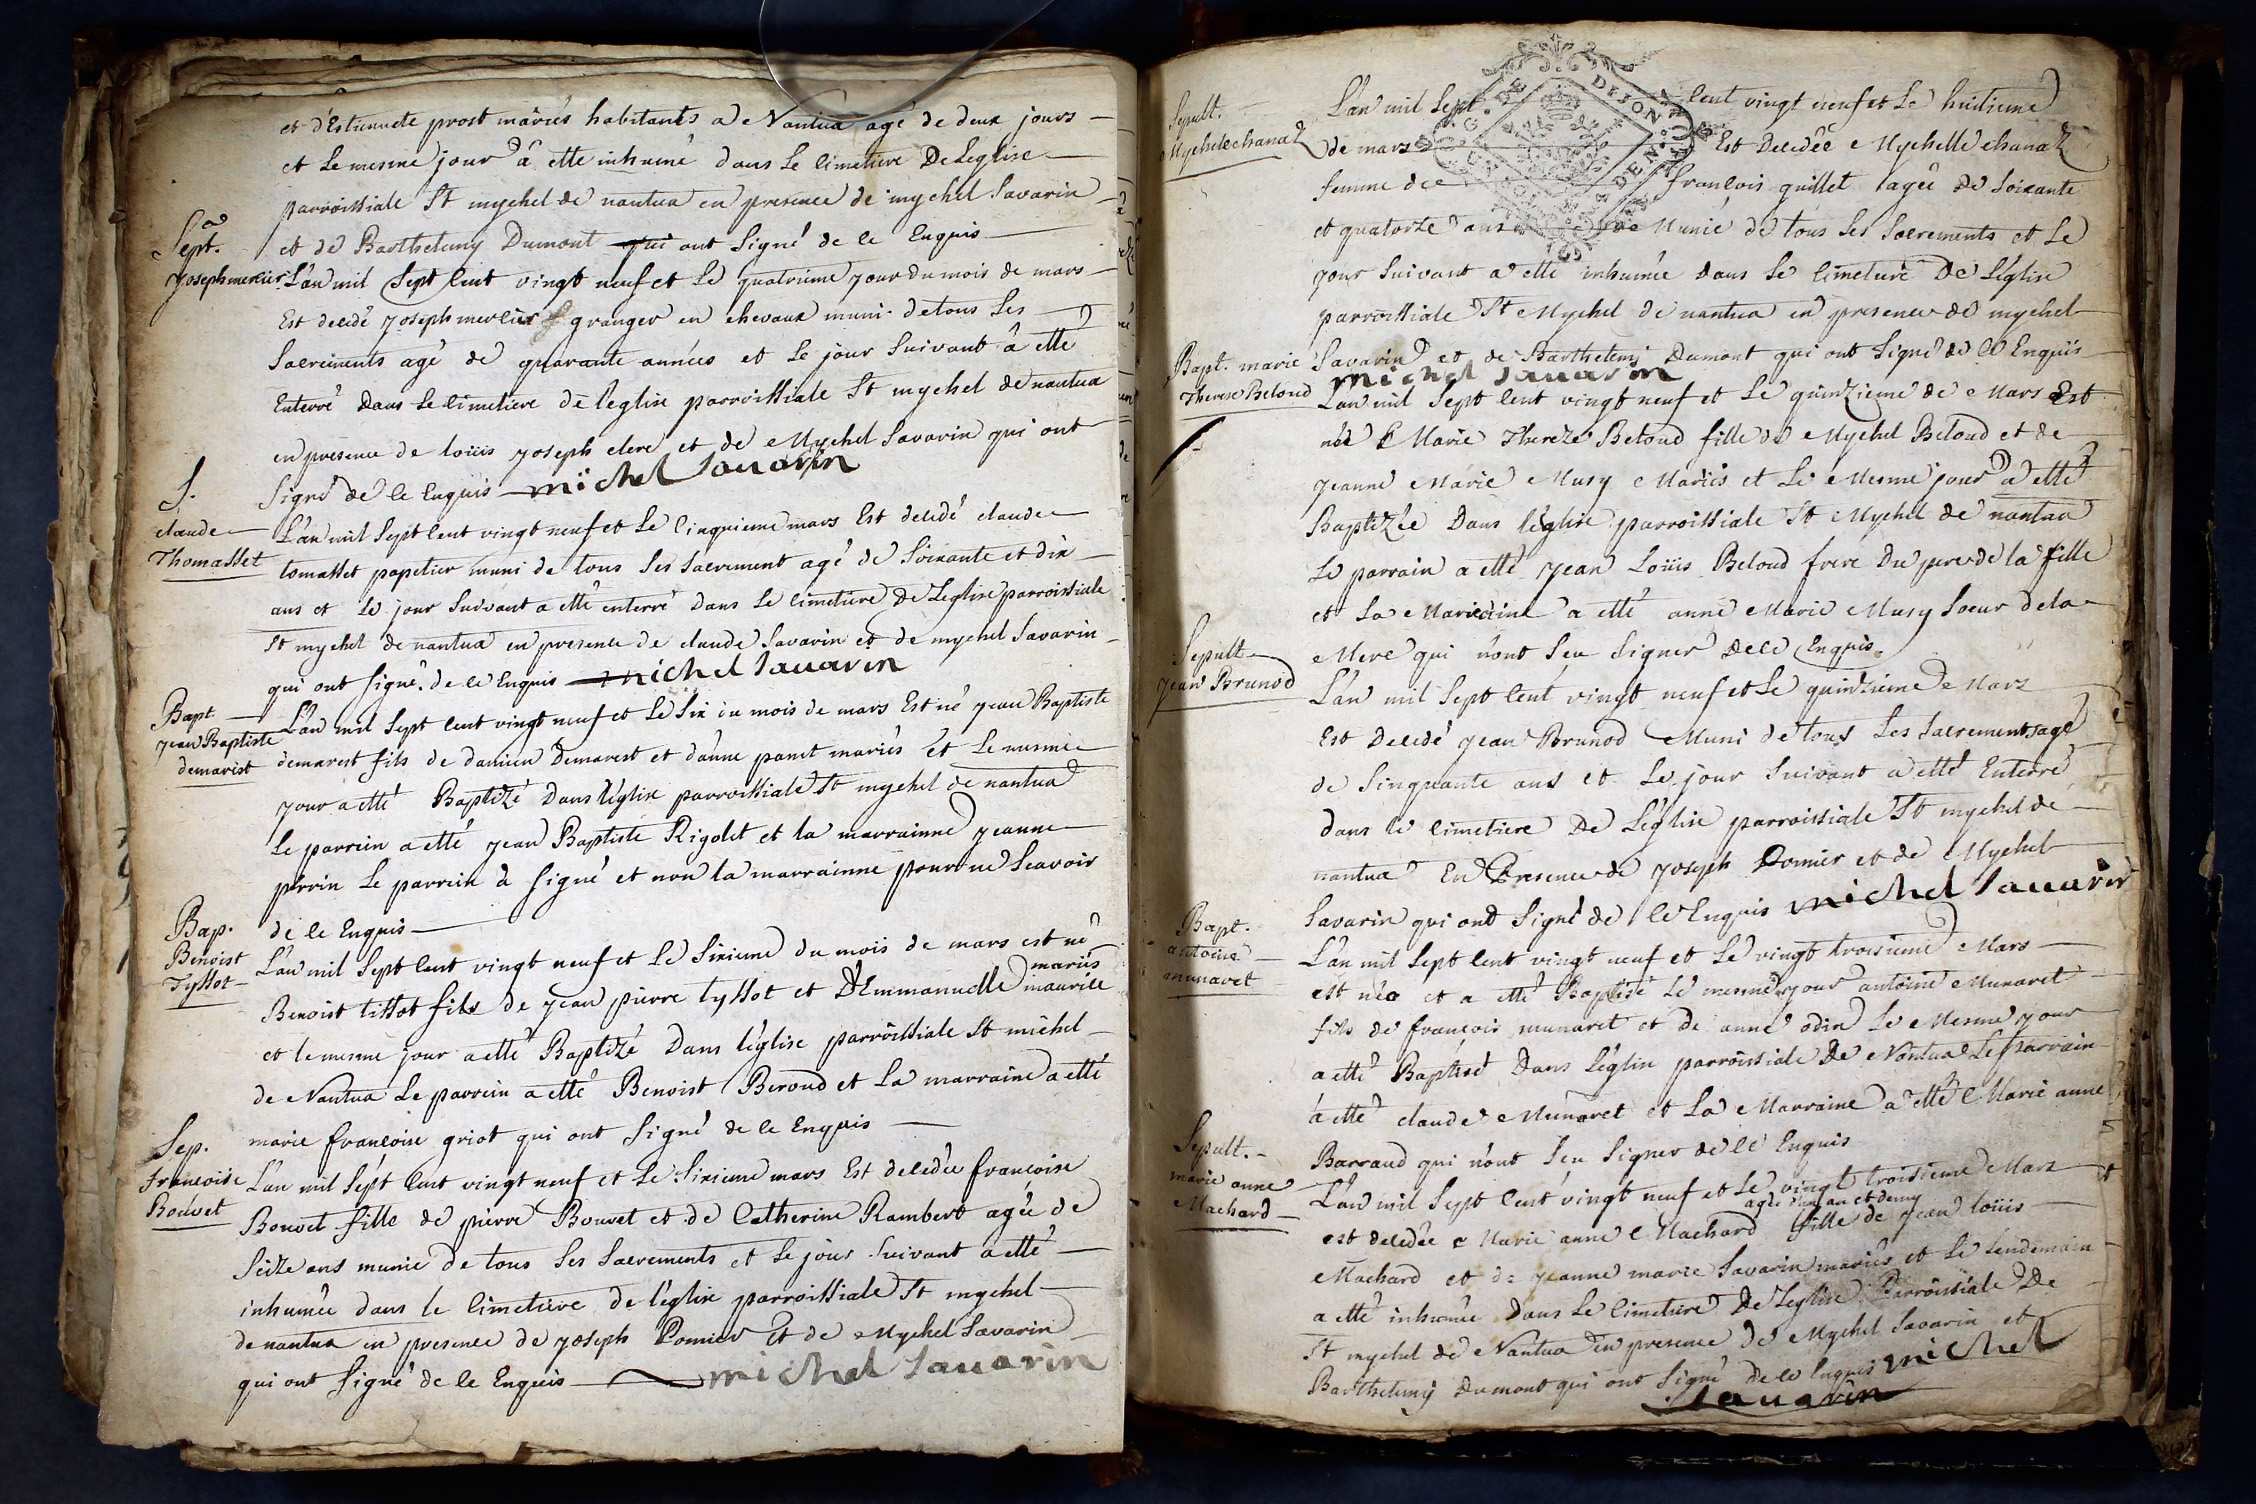 et d'Estiennete prost mariés habitants a Nantua agé de deux jours
et le mesme jour â etté inhumé dans le cimetiere De Leglise
parroissiale St mychel de nantua en presence de mychel Savarin
Sept.
et de Barthelemy Dumont qui ont Signé de ce Enquis
Joseph mercier
L'an mil Sept Cent vingt neuf et Le quatrieme jour du mois de mars
Est decedé Joseph mercier granger en chevaux muni de tous Ses
Sacrements agé de quarante années et Le jour Suivant â etté
Enterré Dans Le Cimetiere de l'eglise parroissiale St mychel de nantua
en presence de Loüis Joseph clerc et de Mychel Savarin qui ont
Signé de Ce Enquis michel Sauarin
S.
claude
Thomasset
L'an mil Sept Cent vingt neuf et Le Cinquieme mars Est decedé claude
tomasset papetier muni de tous Ses Sacrement agé de Soixante et dix
ans et Le jour Suivant a etté enterré dans Le Cimetiere De Leglise parroissiale
St mychel de nantua en presence de claude Savarin et de mychel Savarin
qui ont Signé de Ce Enquis michel Sauarin
Bapt
Jean Baptiste
demarist
L'an mil Sept Cent vingt neuf et Le Six du mois de mars Est né Jean Baptiste
demarest fils de damien Demarest et d'anne panet mariés et Le mesme
jour a etté Baptizé Dans l'église parroissiale St mychel de nantua
Le parrein a etté Jean Baptiste Rigolet et la marrainne Jeanne
perrin Le parrein â Signé et non la marrainne pour ne Scavoir
de Ce Enquis
Bap.
Benoist
Tyssot
L'an mil Sept Cent vingt neuf et Le Sixieme du mois de mars est né
Benoist tissot fils de Jean pierre tyssot et D'Emmanuelle maurice mariés
et le mesme jour a etté Baptizé Dans l'église parroissiale St michel
de Nantua Le parrein a etté Benoist Beroud et La marraine a etté
marie françoise griot qui ont Signé de Ce Enquis
Sep.
françoise
Bouvet
L'an mil Sept Cent vingt neuf et Le Sixieme mars Est decedée françoise
Bouvet fille de pierre Bouvet et de Catherine Rambert agée de
Seize ans munie de tous Ses Sacrements et Le jour Suivant a etté
inhumée dans le Cimetiere de l'église parroissiale St mychel
de nantua en presence de Joseph Pomier et de Mychel Savarin
qui ont Signé de Ce Enquis michel Sauarin
Sepult.
Mychele chanal
L'an mil Sept Cent vingt neuf et Le huitieme
de mars Est Decedée Mychelle chanal
femme de françois quillet agée de Soixante
et quatorze ans Munie de tous Ses Sacrements et Le
jour Suivant a etté inhumée dans Le Cimetiere De L'église
parroissiale St Mychel de nantua en presence de mychel
Savarin et de Barthelemy Dumont qui ont Signé de Ce Enquis
michel Sauarin
Bapt. marie
Therese Beloud
L'an mil Sept Cent vingt neuf et Le quinzieme de Mars Est
née Marie Thereze Beloud fille de Mychel Beloud et de
Jeanne Marie Musy Mariés et Le Mesme jour a etté
Baptizée Dans l'église parroissiale St Mychel de nantua
Le parrain a etté Jean Loüis Beloud frere Du pere de la fille
et La Marraine a etté anne Marie Musy Soeur de la
Mere qui n'ont Seu Signer de Ce Enquis
Sepult
Jean Brunod
L'an mil Sept Cent vingt neuf et Le quinzieme Mars
Est Decedé Jean Brunod Muni de tous Les Sacrements agé
de Sinquante ans et Le jour Suivant a etté Enterré
dans le Cimetiere De L'église parroissiale St mychel de
nantua En Presence de Joseph Pomier et de Mychel
Savarin qui ont Signé de Ce Enquis michel Sauarin
Bapt.
antoine
munaret
L'an mil Sept Cent vingt neuf et Le vingt troisieme Mars
est né et a etté Baptisé Le mesme jour antoine Munaret
fils de françois munaret et de anne odin Le Mesme jour
a etté Baptisé Dans l'église parroissiale De Nantua Le parrain
a etté claude Munaret et La Marraine a etté Marie anne
Barraud qui n'ont Seu Signer de Ce Enquis
Sepult.
marie anne
Machard
L'an mil Sept Cent vingt neuf et Le vingt troisieme Mars
est decedée Marie anne Machard agée d'un an et demy fille de Jean Loüis
Machard et de Jeanne marie Savarin mariés et Le lendemain
a etté inhumée Dans Le Cimetiere De Leglise Parroissiale De
St mychel de Nantua en presence de Mychel Savarin et
Barthelemy Dumont qui ont Signé De Ce Enquis michel
Sauarin